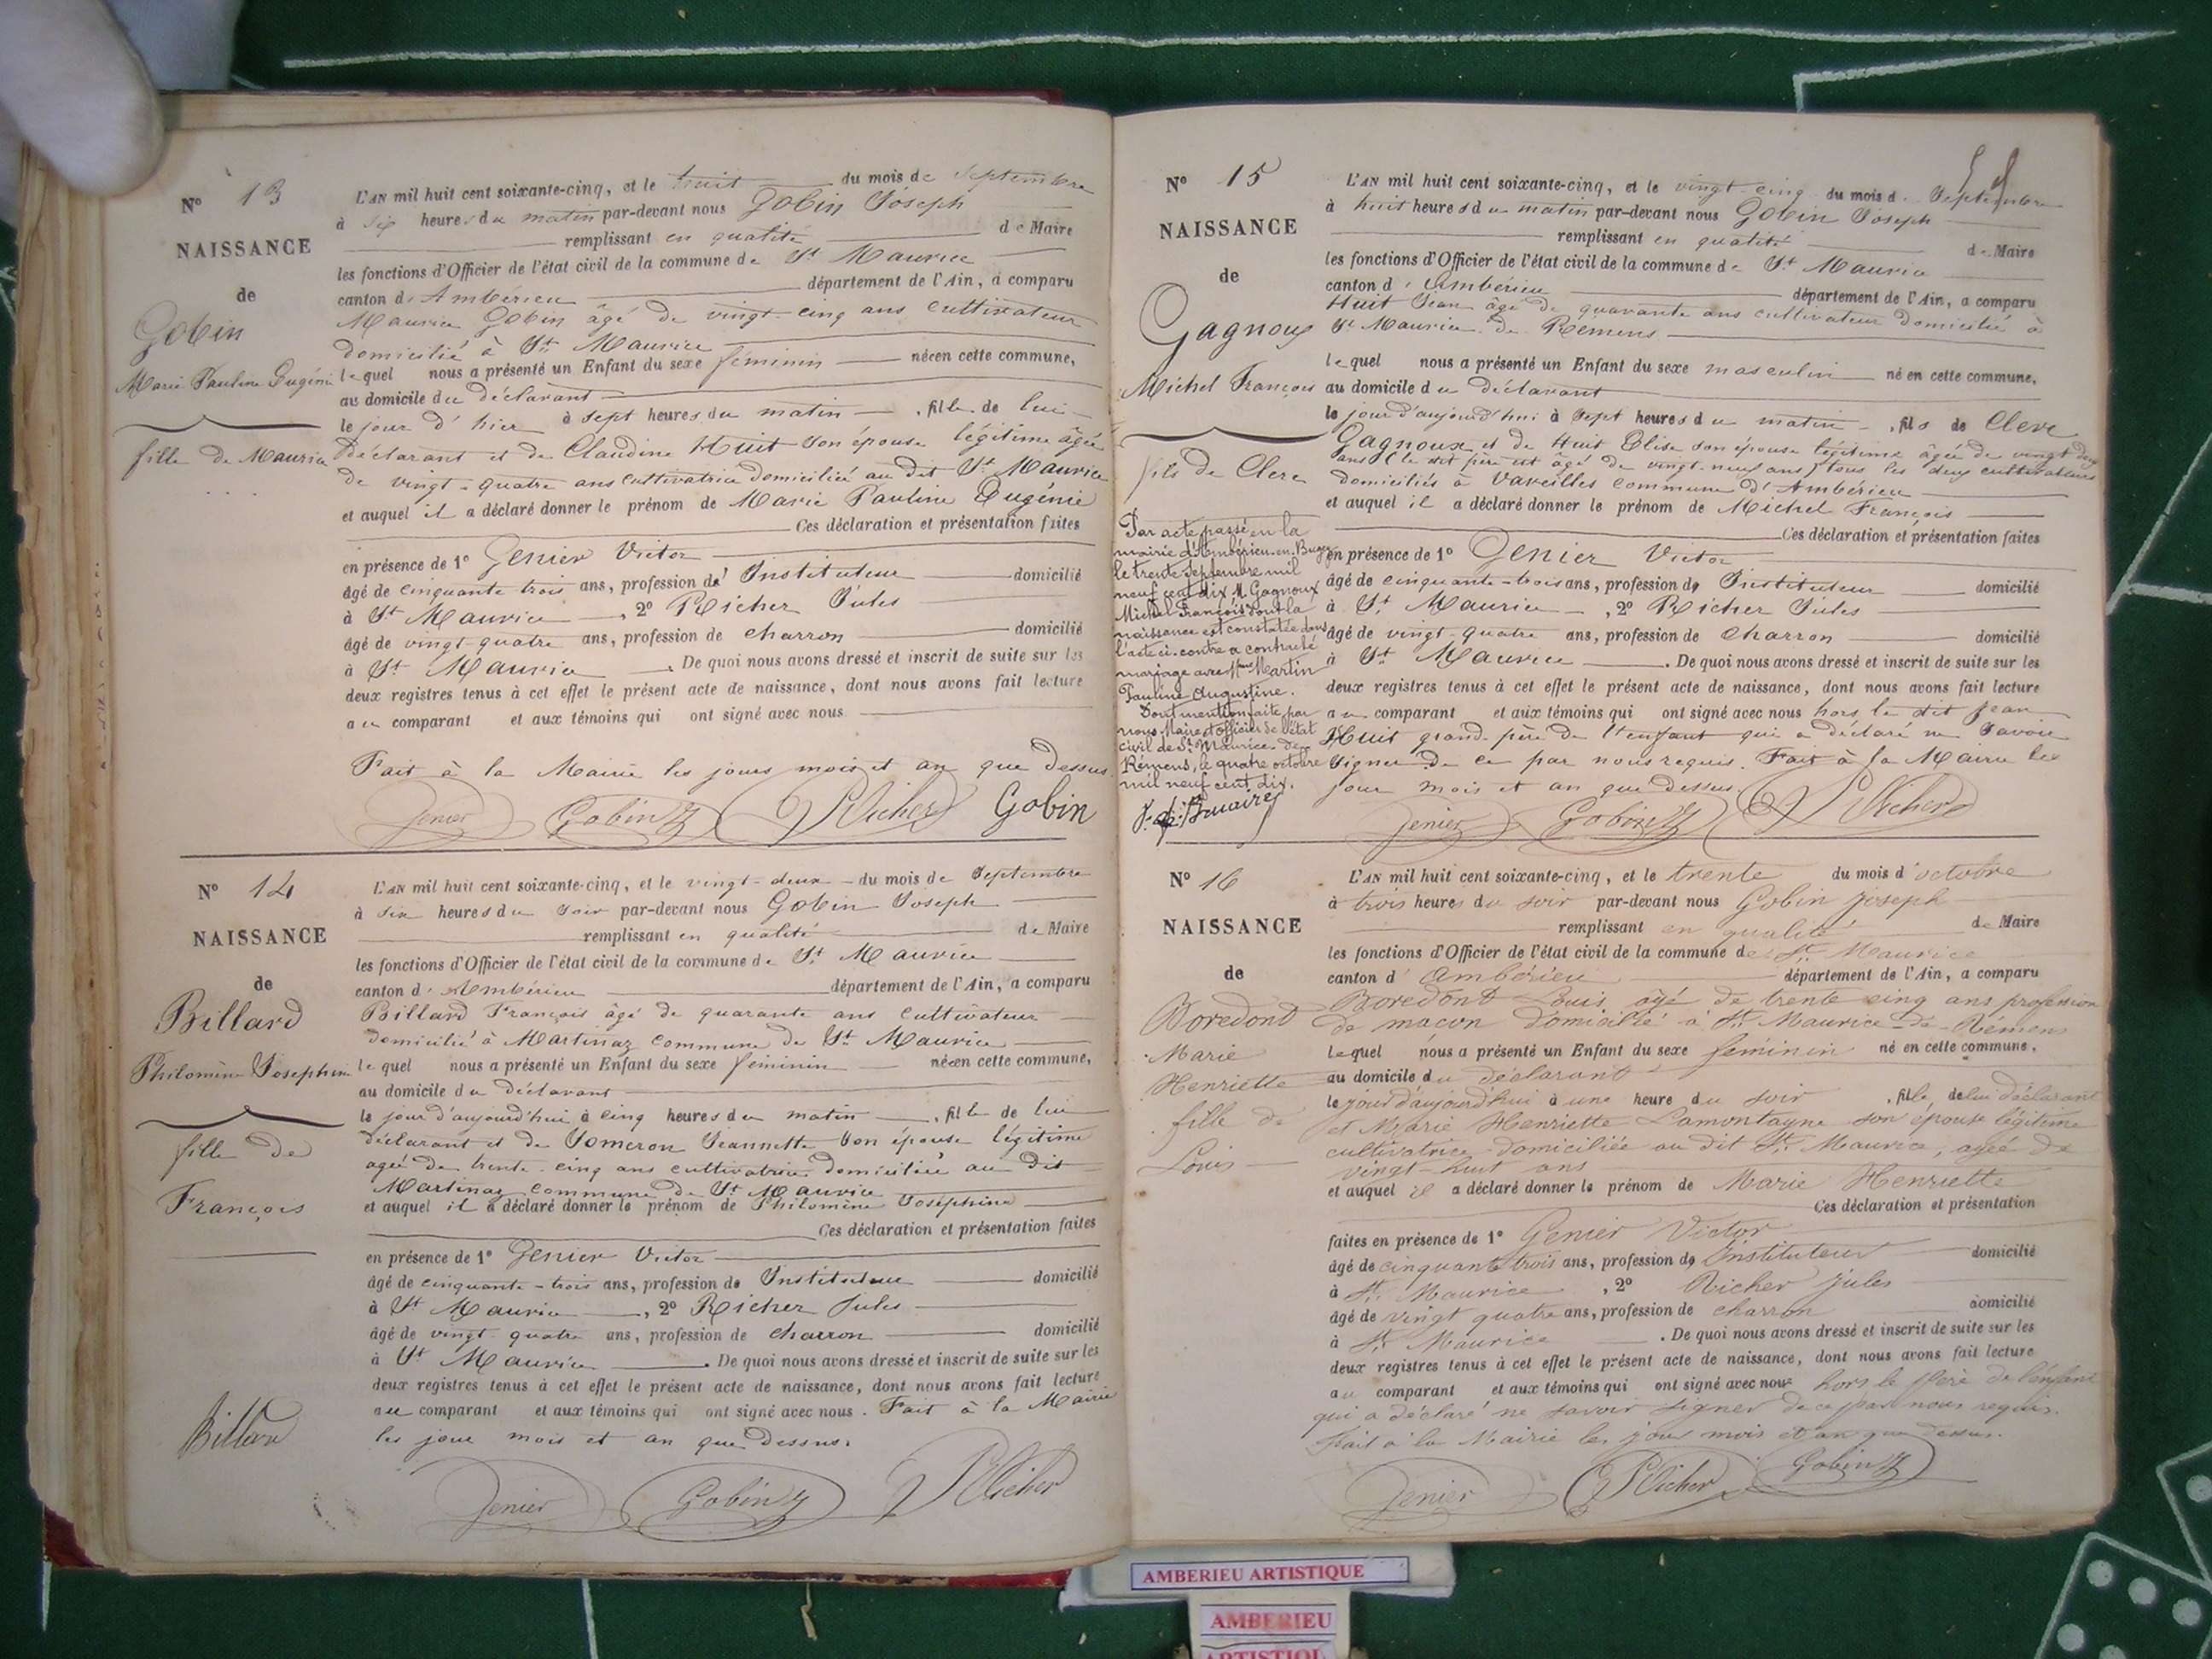 N° 13
NAISSANCE
de
Gobin
Marie Pauline Eugénie
fille de Maurice
L'AN mil huit cent soixante-cinq, et le huit du mois de Septembre
à six heures du matin par-devant nous Gobin Joseph
remplissant en qualité de Maire
les fonctions d'Officier de l'état civil de la commune de St Maurice
canton d'Ambérieu département de l'Ain, a comparu
Maurice Gobin âgé de vingt-cinq ans cultivateur
domicilié à St Maurice
lequel nous a présenté un Enfant du sexe féminin née en cette commune,
au domicile du déclarant
le jour d'hier à sept heures du matin, fille de lui
déclarant et de Claudine Huit son épouse légitime âgée
de vingt-quatre ans cultivatrice domiciliée au dit St Maurice
et auquel il a déclaré donner le prénom de Marie Pauline Eugénie
Ces déclaration et présentation faites
en présence de 1° Genier Victor
âgé de cinquante trois ans, profession d'Instituteur domicilié
à St Maurice, 2° Richer Jules
âgé de vingt-quatre ans, profession de charron domicilié
à St Maurice. De quoi nous avons dressé et inscrit de suite sur les
deux registres tenus à cet effet le présent acte de naissance, dont nous avons fait lecture
au comparant et aux témoins qui ont signé avec nous
Fait à la Mairie les jours mois et an que dessus.
Genier Gobin J Richer Gobin
N° 14
NAISSANCE
de
Billard
Philomène Joséphine
fille de
François
Billard
L'AN mil huit cent soixante-cinq, et le vingt-deux du mois de Septembre
à six heures du soir par-devant nous Gobin Joseph
remplissant en qualité de Maire
les fonctions d'Officier de l'état civil de la commune de St Maurice
canton d'Ambérieu département de l'Ain, a comparu
Billard François âgé de quarante ans cultivateur
domicilié à Martinaz commune de St Maurice
lequel nous a présenté un Enfant du sexe féminin née en cette commune,
au domicile du déclarant
le jour d'aujourd'hui à cinq heures du matin, fille de lui
déclarant et de Jomeron Jeannette son épouse légitime
agée de trente-cinq ans cultivatrice domiciliée au dit
Martinaz commune de St Maurice
et auquel il a déclaré donner le prénom de Philomène Joséphine
Ces déclaration et présentation faites
en présence de 1° Genier Victor
âgé de cinquante-trois ans, profession de Instituteur domicilié
à St Maurice, 2° Richer Jules
âgé de vingt quatre ans, profession de charron domicilié
à St Maurice. De quoi nous avons dressé et inscrit de suite sur les
deux registres tenus à cet effet le présent acte de naissance, dont nous avons fait lecture
au comparant et aux témoins qui ont signé avec nous. Fait à la Mairie
les jour mois et an que dessus.
Genier Gobin J Richer
N° 15
NAISSANCE
de
Gagnoux
Michel François
fils de Clerc
Par acte passé en la
mairie d'Ambérieu-en-Bugey
le trente Septembre mil
neuf cent dix M. Gagnoux
Michel François dont la
naissance est constatée dans
l'acte ci-contre a contracté
mariage avec Martin
Pauline Augustine.
Dont mention faite par
nous Maire et officier de l'état
civil de St Maurice-de-
Rémens, le quatre octobre
mil neuf cent dix.
L'AN mil huit cent soixante-cinq, et le vingt-cinq du mois d. Septembre
à huit heures du matin par-devant nous Gobin Joseph
remplissant en qualité de Maire
les fonctions d'Officier de l'état civil de la commune de St Maurice
canton d'Ambérieu département de l'Ain, a comparu
Huit Jean âgé de quarante ans cultivateur domicilié à
St Maurice de Remens
lequel nous a présenté un Enfant du sexe masculin né en cette commune,
au domicile du déclarant
le jour d'aujourd'hui à sept heures du matin, fils de Clerc
Gagnoux et de Huit Elise son épouse légitime âgée de vingt deux
ans (le dit père est âgé de vingt-neuf ans) tous les deux cultivateurs
domiciliés à Vareilles commune d'Ambérieu
et auquel il a déclaré donner le prénom de Michel François
Ces déclaration et présentation faites
en présence de 1° Genier Victor
âgé de cinquante-trois ans, profession de Instituteur domicilié
à St Maurice, 2° Richer Jules
âgé de vingt-quatre ans, profession de charron domicilié
à St Maurice. De quoi nous avons dressé et inscrit de suite sur les
deux registres tenus à cet effet le présent acte de naissance, dont nous avons fait lecture
au comparant et aux témoins qui ont signé avec nous hors le dit Jean
Huit grand-père de l'enfant qui a déclaré ne savoir
signer de ce par nous requis. Fait à la Mairie les
jour mois et an que dessus
Genier Gobin J Richer
N° 16
NAISSANCE
de
Boredont
Marie
Henriette
fille de
Louis
L'AN mil huit cent soixante-cinq, et le trente du mois d'octobre
à trois heures du soir par-devant nous Gobin Joseph
remplissant en qualité de Maire
les fonctions d'Officier de l'état civil de la commune de St Maurice
canton d'Ambérieu département de l'Ain, a comparu
Boredont Louis âgé de trente cinq ans profession
de macon domicilié à St Maurice-de-Rémens
Lequel nous a présenté un Enfant du sexe féminin né en cette commune,
au domicile du déclarant
le jour d'aujourd'hui à une heure du soir, fille de lui déclarant
et Marie Henriette Lamontagne son épouse légitime
cultivatrice domiciliée au dit St Maurice, agée de
vingt-huit ans
et auquel il a déclaré donner le prénom de Marie Henriette
Ces déclaration et présentation
faites en présence de 1° Genier Victor
âgé de cinquante trois ans, profession de Instituteur domicilié
à St Maurice, 2° Richer Jules
âgé de vingt quatre ans, profession de charron domicilié
à St Maurice. De quoi nous avons dressé et inscrit de suite sur les
deux registres tenus à cet effet le présent acte de naissance, dont nous avons fait lecture
au comparant et aux témoins qui ont signé avec nous hors le père de l'enfant
qui a déclaré ne savoir signer de ce par nous requis.
Fait à la Mairie les jour mois et an que dessus.
Genier J Richer Gobin
AMBERIEU ARTISTIQUE
AMBERIEU